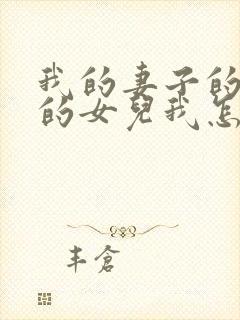 我的妻子的
的女兒我怎
丰倉